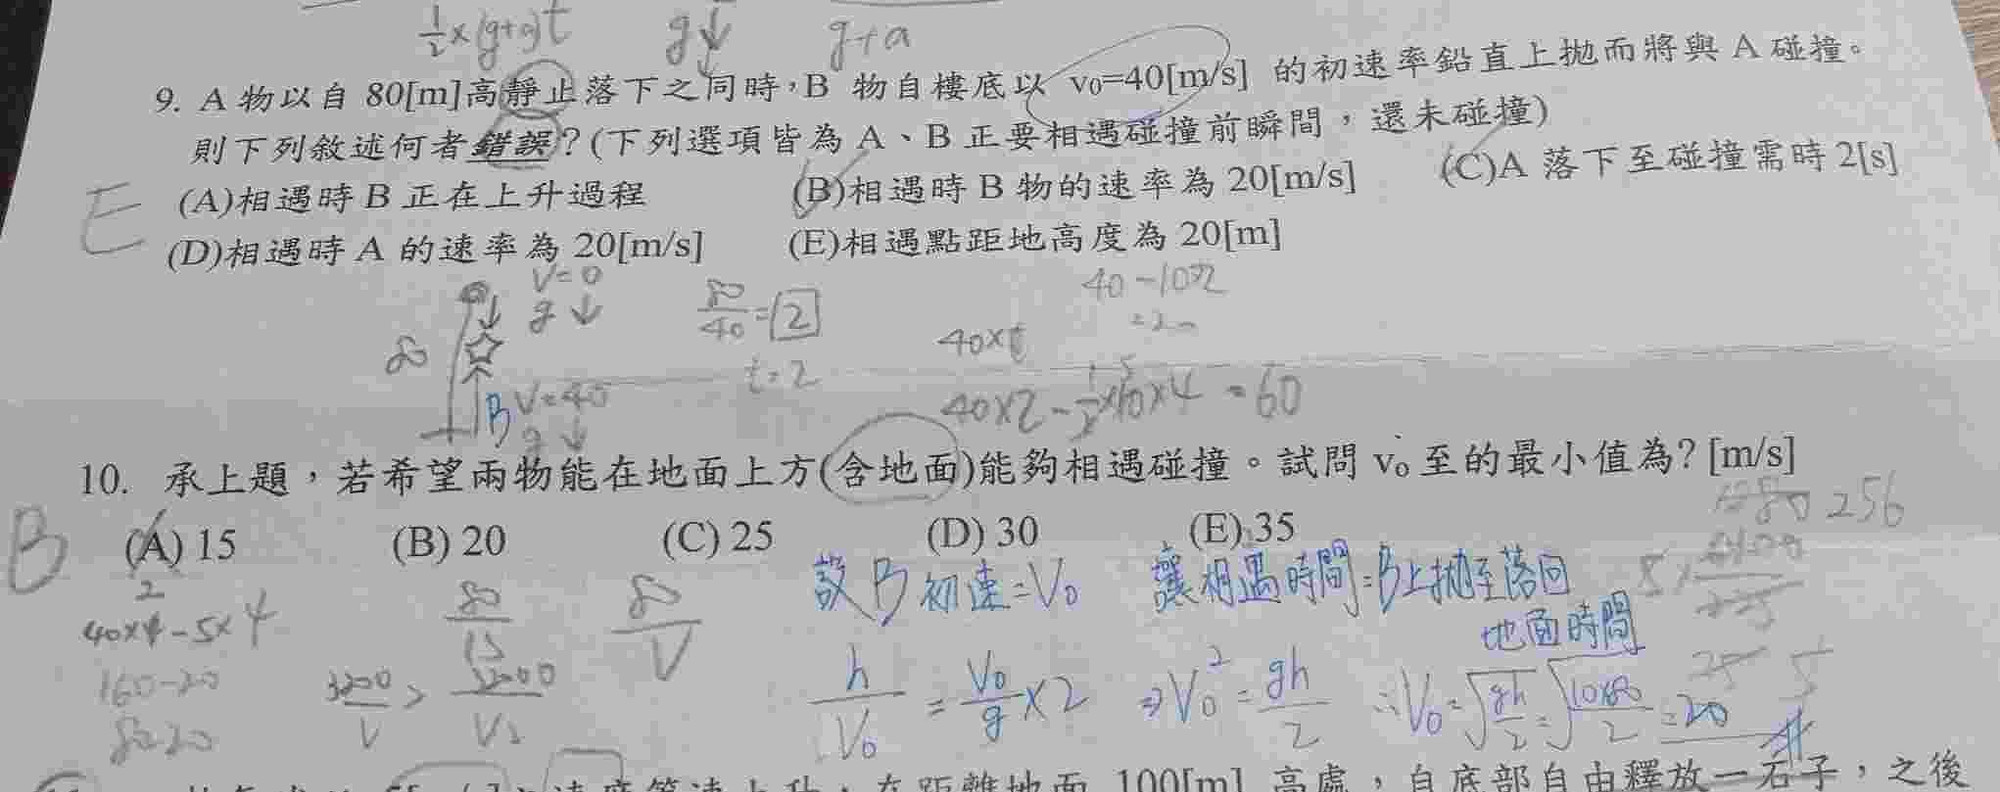 ½×(g+a)t g↓ g+a
9. A 物以自 80[m]高靜止落下之同時，B 物自樓底以 v₀=40[m/s] 的初速率鉛直上拋而將與 A 碰撞。
則下列敘述何者錯誤？(下列選項皆為 A、B 正要相遇碰撞前瞬間，還未碰撞)
E
(A)相遇時 B 正在上升過程 (B)相遇時 B 物的速率為 20[m/s] (C)A 落下至碰撞需時 2[s]
(D)相遇時 A 的速率為 20[m/s] (E)相遇點距地高度為 20[m]
V=0
g↓
80
80/40=2
t=2
40×t
B V=40
g↓
40×2-½×10×4=60
10. 承上題，若希望兩物能在地面上方(含地面)能夠相遇碰撞。試問 v₀至的最小值為? [m/s]
B
(A) 15 (B) 20 (C) 25 (D) 30 (E) 35
256
設B初速=V₀ 讓相遇時間=B上拋至落回
地面時間
80/V
160-20
h/V₀ = V₀/g ×2 ⇒V₀²=gh/2 ∴V₀=√(gh/2)=√(10×80/2)=20 #
100[m] 高處，自底部自由釋放一石子，之後